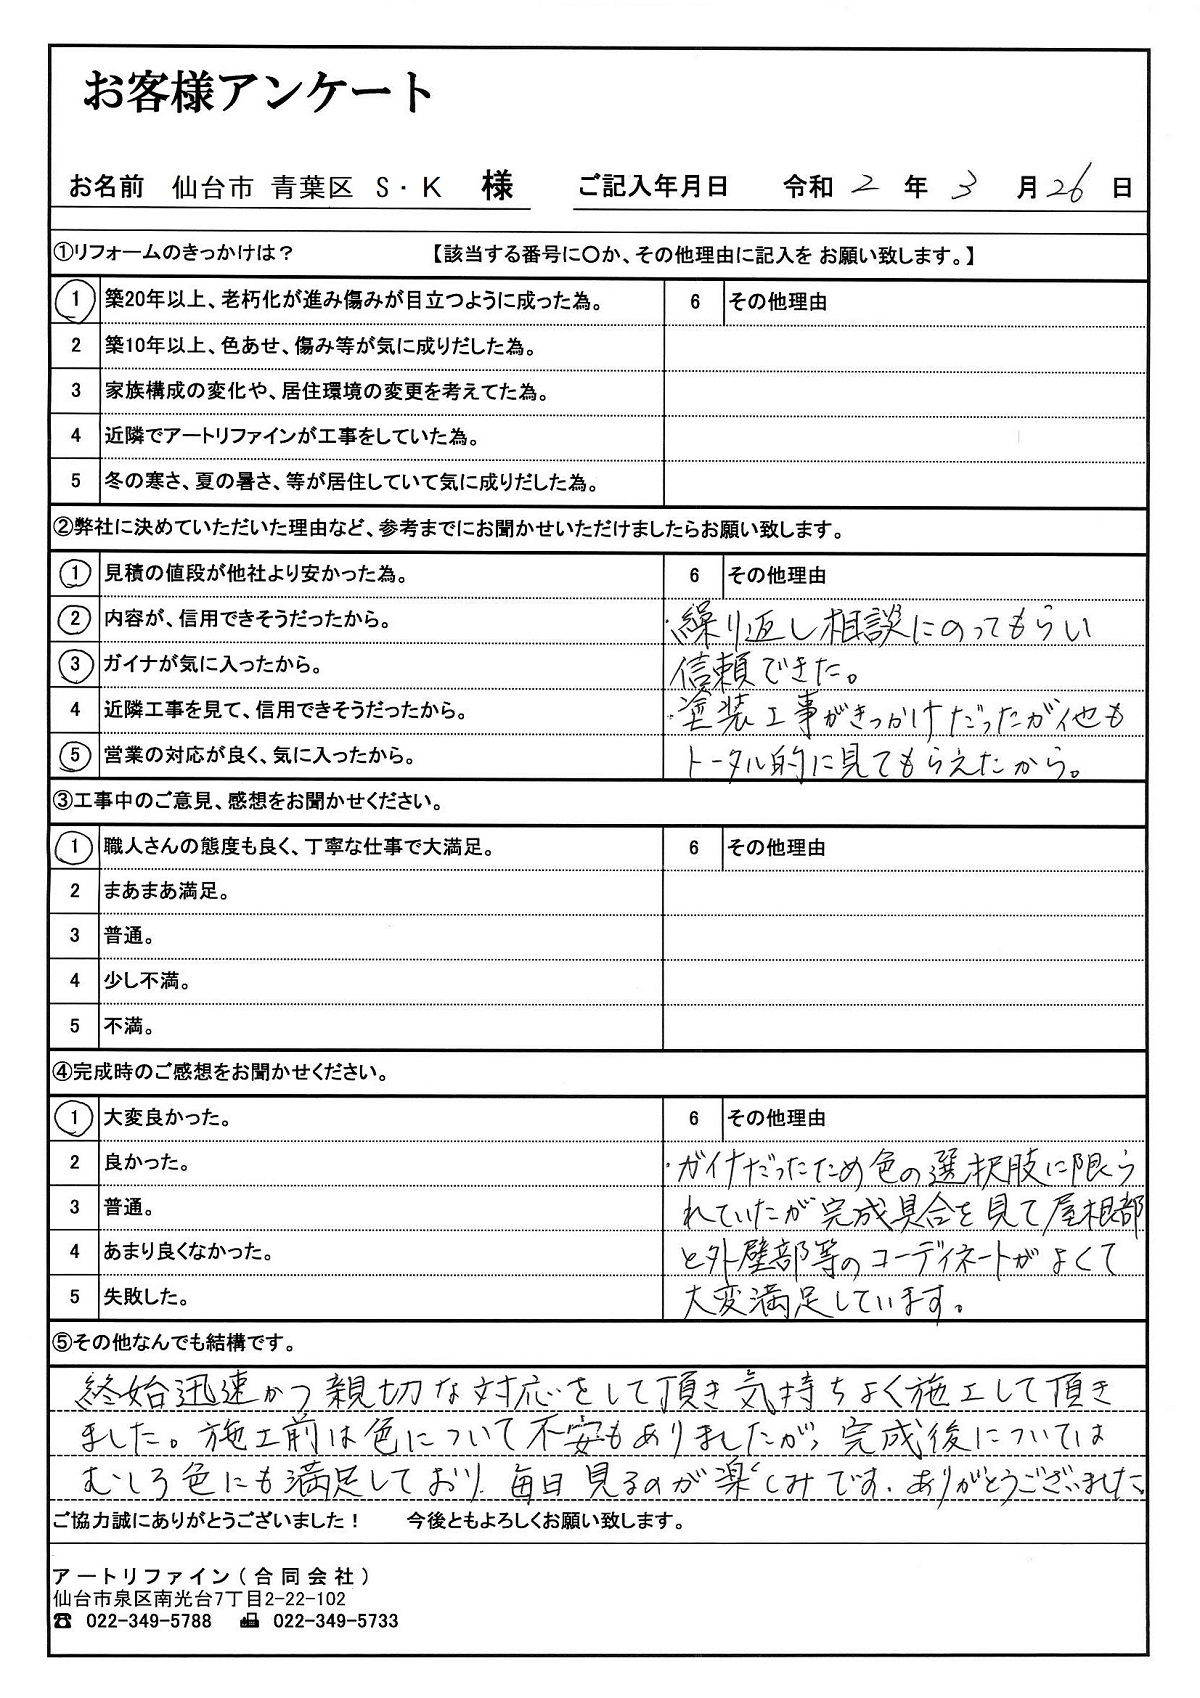 お客様アンケート
お名前 仙台市 青葉区 S・K 様 ご記入年月日 令和 2 年 3 月 26 日
①リフォームのきっかけは？ 【該当する番号に〇か、その他理由に記入を お願い致します。】
1 築20年以上、老朽化が進み傷みが目立つように成った為。 6 その他理由
2 築10年以上、色あせ、傷み等が気に成りだした為。
3 家族構成の変化や、居住環境の変更を考えてた為。
4 近隣でアートリファインが工事をしていた為。
5 冬の寒さ、夏の暑さ、等が居住していて気に成りだした為。
②弊社に決めていただいた理由など、参考までにお聞かせいただけましたらお願い致します。
1 見積の値段が他社より安かった為。 6 その他理由
2 内容が、信用できそうだったから。 ・繰り返し相談にのってもらい
3 ガイナが気に入ったから。 信頼できた。
4 近隣工事を見て、信用できそうだったから。 ・塗装工事がきっかけだったが他も
5 営業の対応が良く、気に入ったから。 トータル的に見てもらえたから。
③工事中のご意見、感想をお聞かせください。
1 職人さんの態度も良く、丁寧な仕事で大満足。 6 その他理由
2 まあまあ満足。
3 普通。
4 少し不満。
5 不満。
④完成時のご感想をお聞かせください。
1 大変良かった。 6 その他理由
2 良かった。 ・ガイナだったため色の選択肢に限ら
3 普通。 れていたが完成具合を見て屋根部
4 あまり良くなかった。 と外壁部等のコーディネートがよくて
5 失敗した。 大変満足しています。
⑤その他なんでも結構です。
終始迅速かつ親切な対応をして頂き気持ちよく施工して頂き
ました。施工前は色について不安もありましたが、完成後については
むしろ色にも満足しており、毎日見るのが楽しみです。ありがとうございました。
ご協力誠にありがとうございました！ 今後ともよろしくお願い致します。
アートリファイン（合同会社）
仙台市泉区南光台7丁目2-22-102
☎ 022-349-5788 📠 022-349-5733